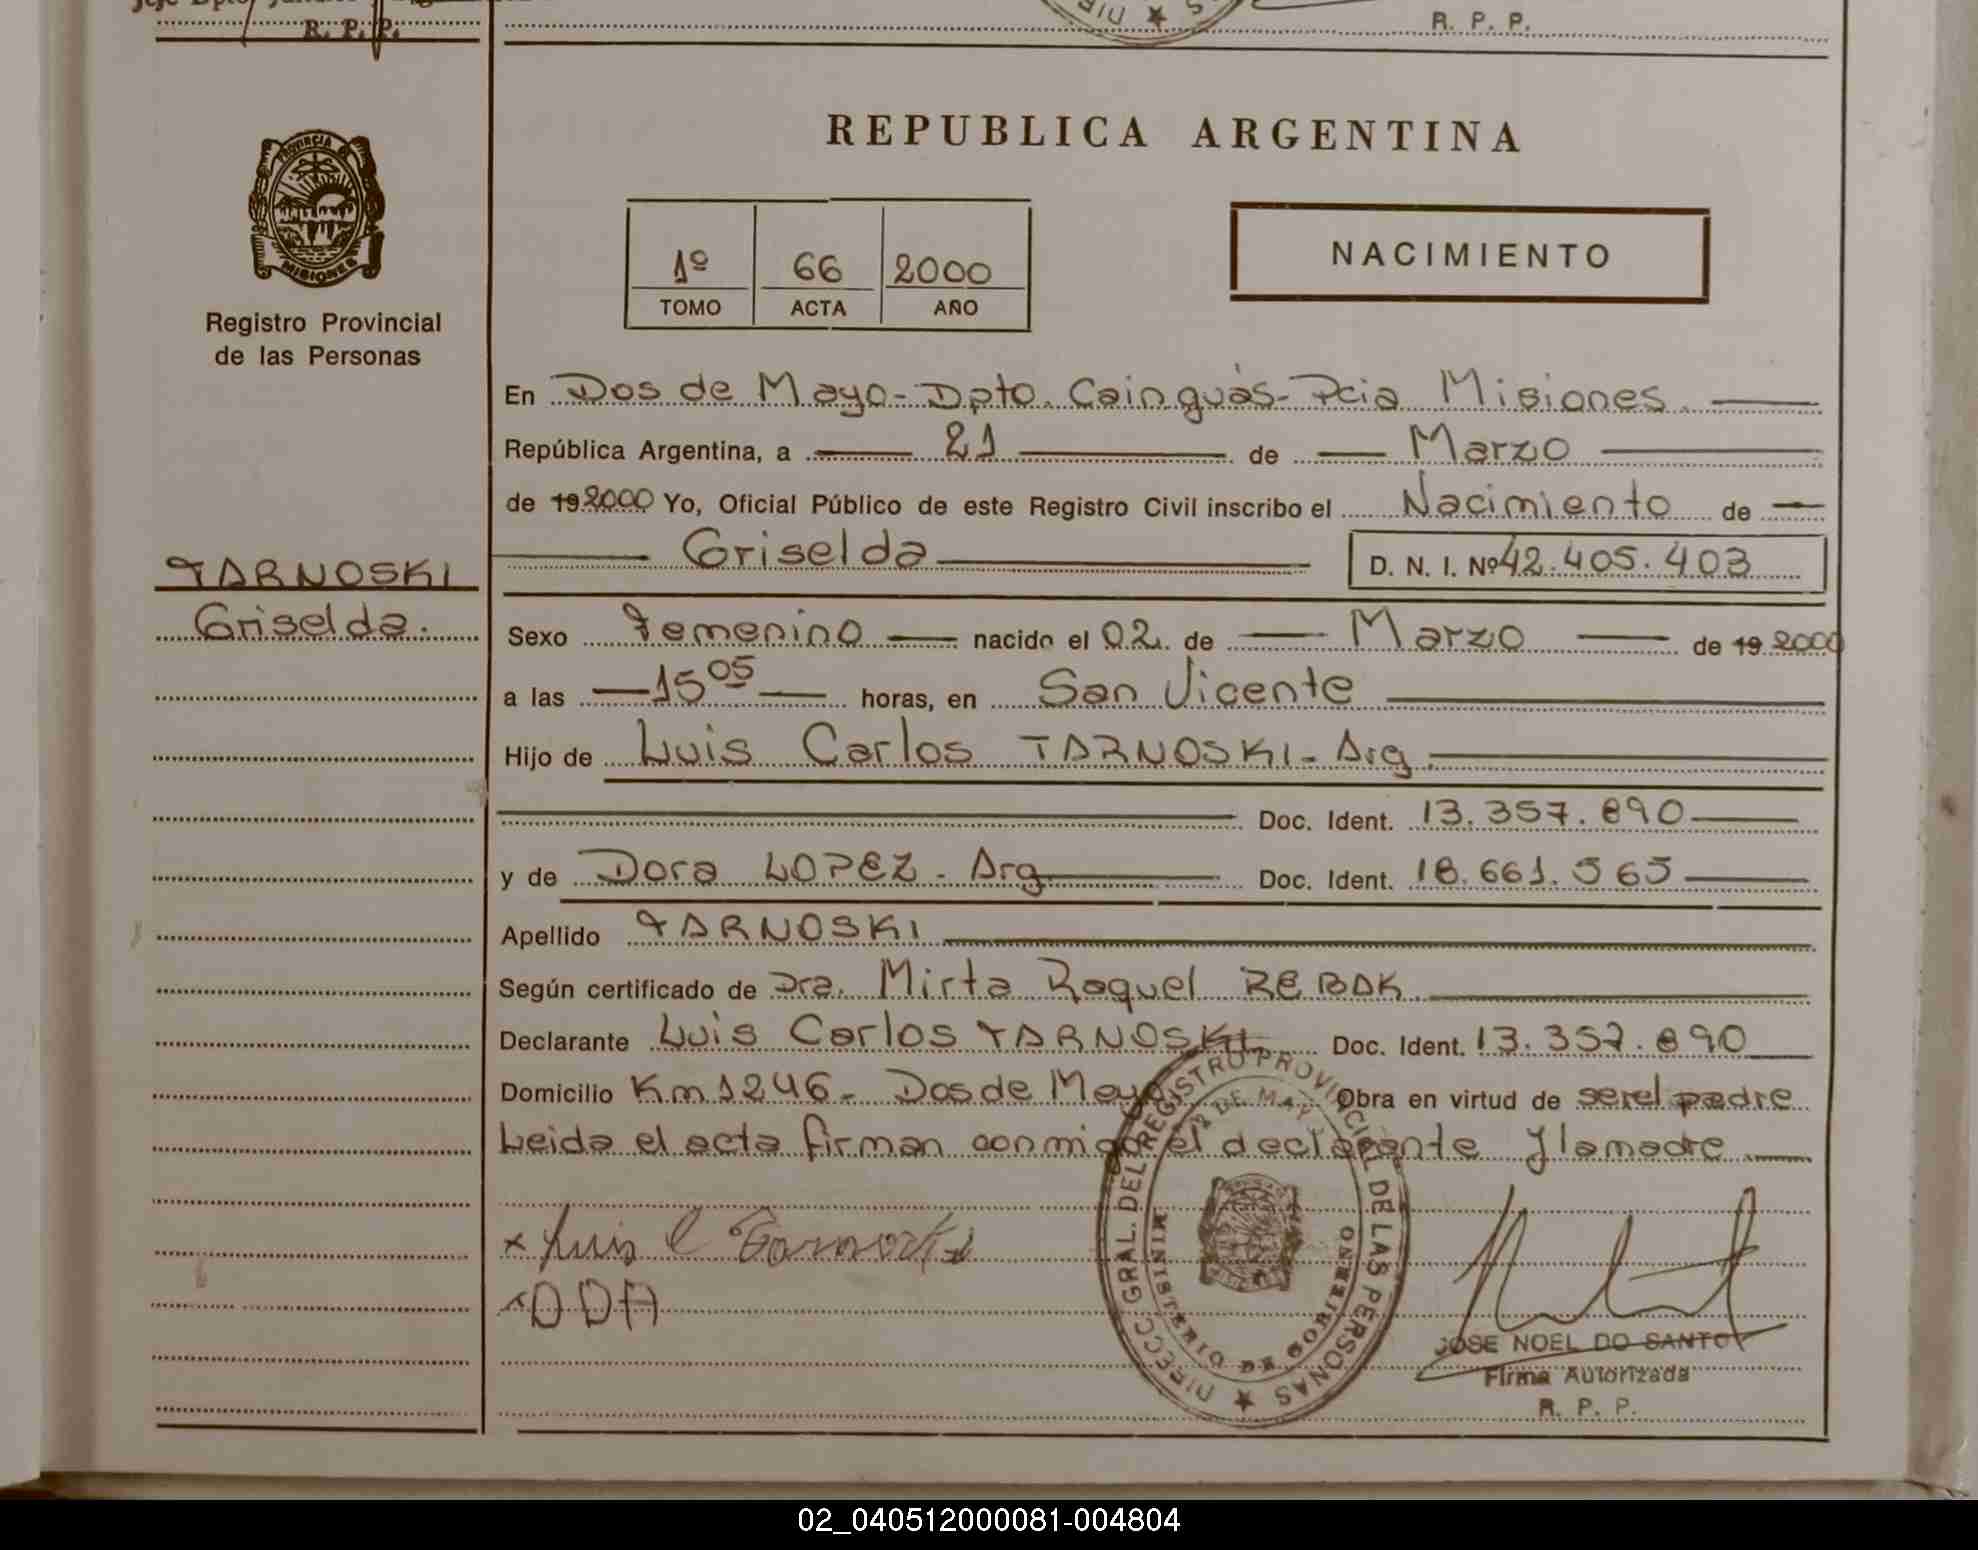 R. P. P.
R. P. P.
REPUBLICA ARGENTINA
PROVINCIA DE
MISIONES
Registro Provincial
de las Personas
1º 66 2000
TOMO ACTA AÑO
NACIMIENTO
En Dos de Mayo - Dpto. Cainguás - Pcia Misiones.
República Argentina, a 21 de Marzo
de 19 2000 Yo, Oficial Público de este Registro Civil inscribo el Nacimiento de
Griselda D. N. I. Nº 42.405.403
TARNOSKI
Griselda.
Sexo Femenino nacido el 02 de Marzo de 19 2000
a las 15 05 horas, en San Vicente
Hijo de Luis Carlos TARNOSKI - Arg.
Doc. Ident. 13.357.890
y de Dora LOPEZ - Arg. Doc. Ident. 18.661.565
Apellido TARNOSKI
Según certificado de Dra. Mirta Raquel REBAK
Declarante Luis Carlos TARNOSKI Doc. Ident. 13.357.890
Domicilio Km 1246 - Dos de Mayo Obra en virtud de ser el padre
Leida el acta firman conmigo el declarante y la madre
x Luis C Tarnoski
x DDA
DIRECC. GRAL. DEL REGISTRO PROVINCIAL DE LAS PERSONAS
MINISTERIO DE GOBIERNO
2 DE MAYO
JOSE NOEL DO SANTOS
Firma Autorizada
R. P. P.
02_040512000081-004804